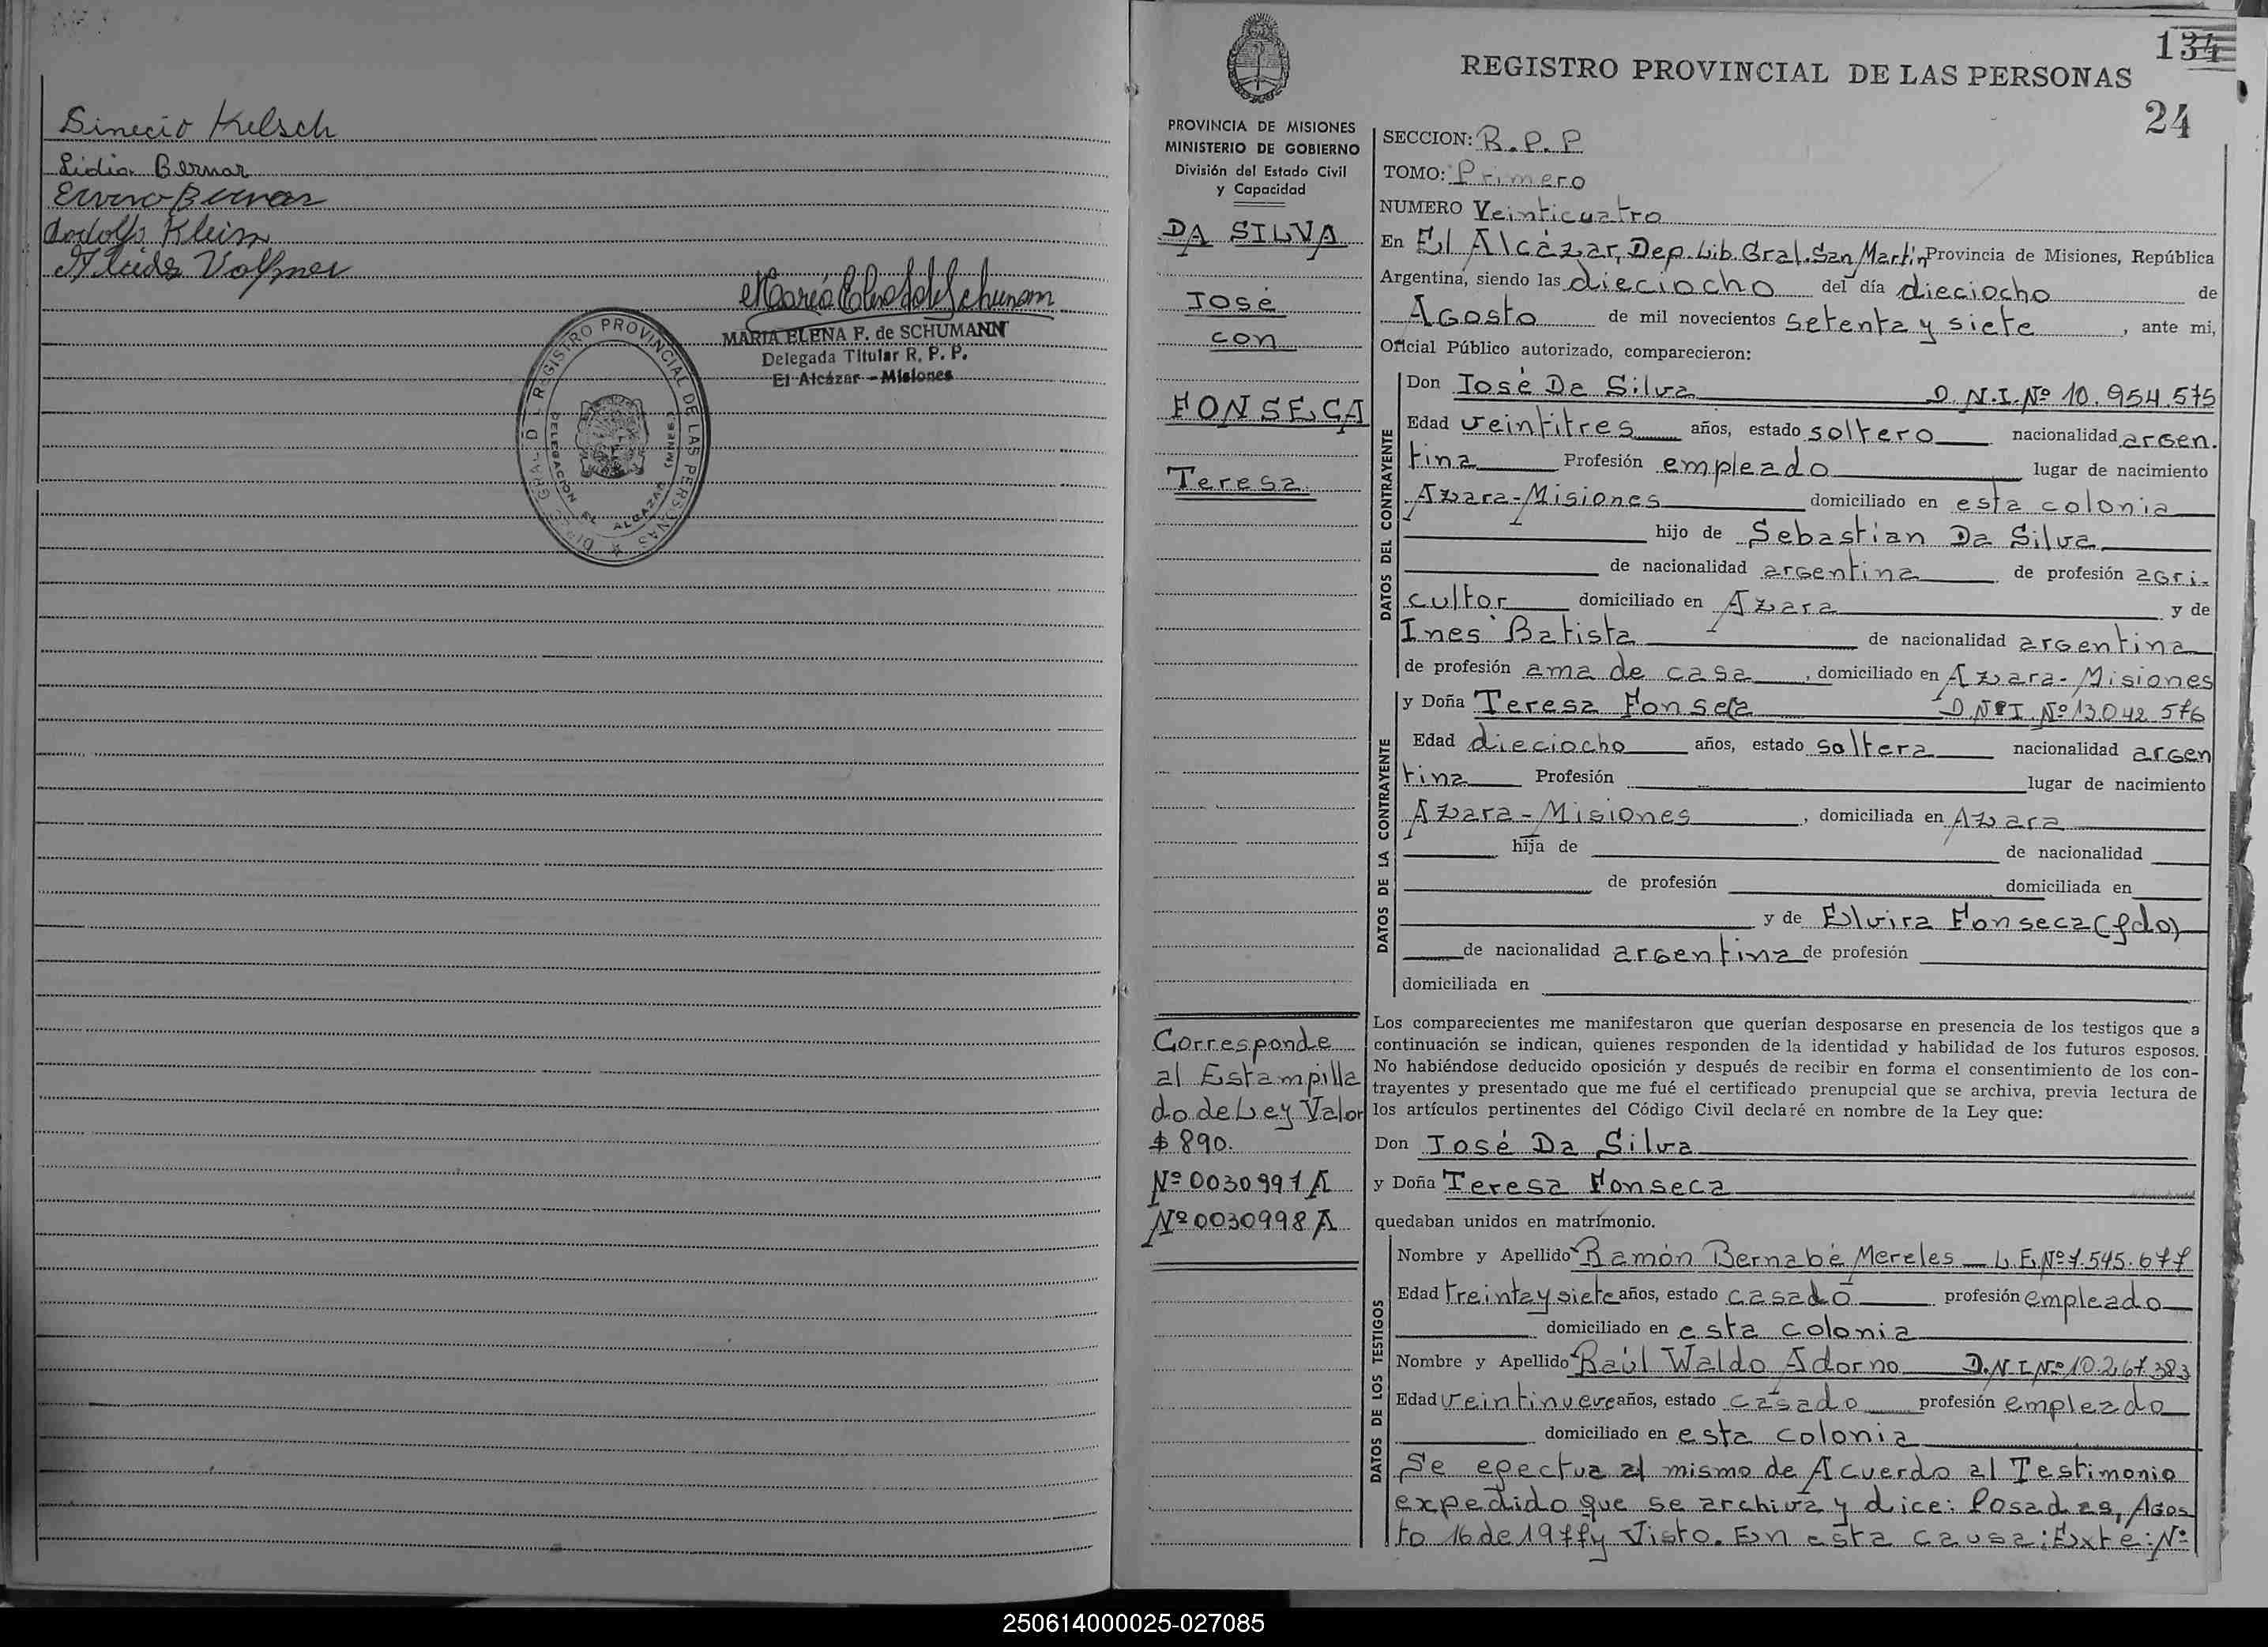 Sinecio Kelsch
Lidia Bernar
Ervino Bernar
Rodolfo Klein
Alcides Volmer
MARIA ELENA F. de SCHUMANN
Delegada Titular R. P. P.
El Alcázar - Misiones
REGISTRO PROVINCIAL DE LAS PERSONAS
DELEGACION EL ALCAZAR (MNES.)
134
REGISTRO PROVINCIAL DE LAS PERSONAS
24
PROVINCIA DE MISIONES
MINISTERIO DE GOBIERNO
División del Estado Civil
y Capacidad
DA SILVA
José
con
FONSECA
Teresa
Corresponde
al Estampilla
do de Ley Valor
$ 890.
Nº 0030997 A
Nº 0030998 A
SECCION: R.P.P
TOMO: Primero
NUMERO Veinticuatro
En El Alcázar, Dep. Lib. Gral. San Martin Provincia de Misiones, República
Argentina, siendo las dieciocho del día dieciocho de
Agosto de mil novecientos setenta y siete, ante mi,
Oficial Público autorizado, comparecieron:
DATOS DEL CONTRAYENTE
Don José Da Silva D.N.I. Nº 10.954.575
Edad veintitres años, estado soltero nacionalidad argen.
tina Profesión empleado lugar de nacimiento
Azara-Misiones domiciliado en esta colonia
hijo de Sebastian Da Silva
de nacionalidad argentina de profesión agri-
cultor domiciliado en Azara y de
Ines Batista de nacionalidad argentina
de profesión ama de casa, domiciliado en Azara-Misiones
DATOS DE LA CONTRAYENTE
y Doña Teresa Fonseca D.N.I. Nº 13.042.576
Edad dieciocho años, estado soltera nacionalidad argen
tina Profesión lugar de nacimiento
Azara-Misiones, domiciliada en Azara
hija de de nacionalidad
de profesión domiciliada en
y de Elvira Fonseca (fdo)
de nacionalidad argentina de profesión
domiciliada en
Los comparecientes me manifestaron que querían desposarse en presencia de los testigos que a
continuación se indican, quienes responden de la identidad y habilidad de los futuros esposos.
No habiéndose deducido oposición y después de recibir en forma el consentimiento de los con-
trayentes y presentado que me fué el certificado prenupcial que se archiva, previa lectura de
los artículos pertinentes del Código Civil declaré en nombre de la Ley que:
Don José Da Silva
y Doña Teresa Fonseca
quedaban unidos en matrimonio.
DATOS DE LOS TESTIGOS
Nombre y Apellido Ramón Bernabé Mereles L.E. Nº 7.545.677
Edad treinta y siete años, estado casado profesión empleado
domiciliado en esta colonia
Nombre y Apellido Raúl Waldo Adorno D.N.I. Nº 10.267.383
Edad veintinueve años, estado casado profesión empleado
domiciliado en esta colonia
Se efectua al mismo de Acuerdo al Testimonio
expedido que se archiva y dice: Posadas, Agos
to 16 de 1977 y Visto. En esta causa: Exte: Nº
250614000025-027085